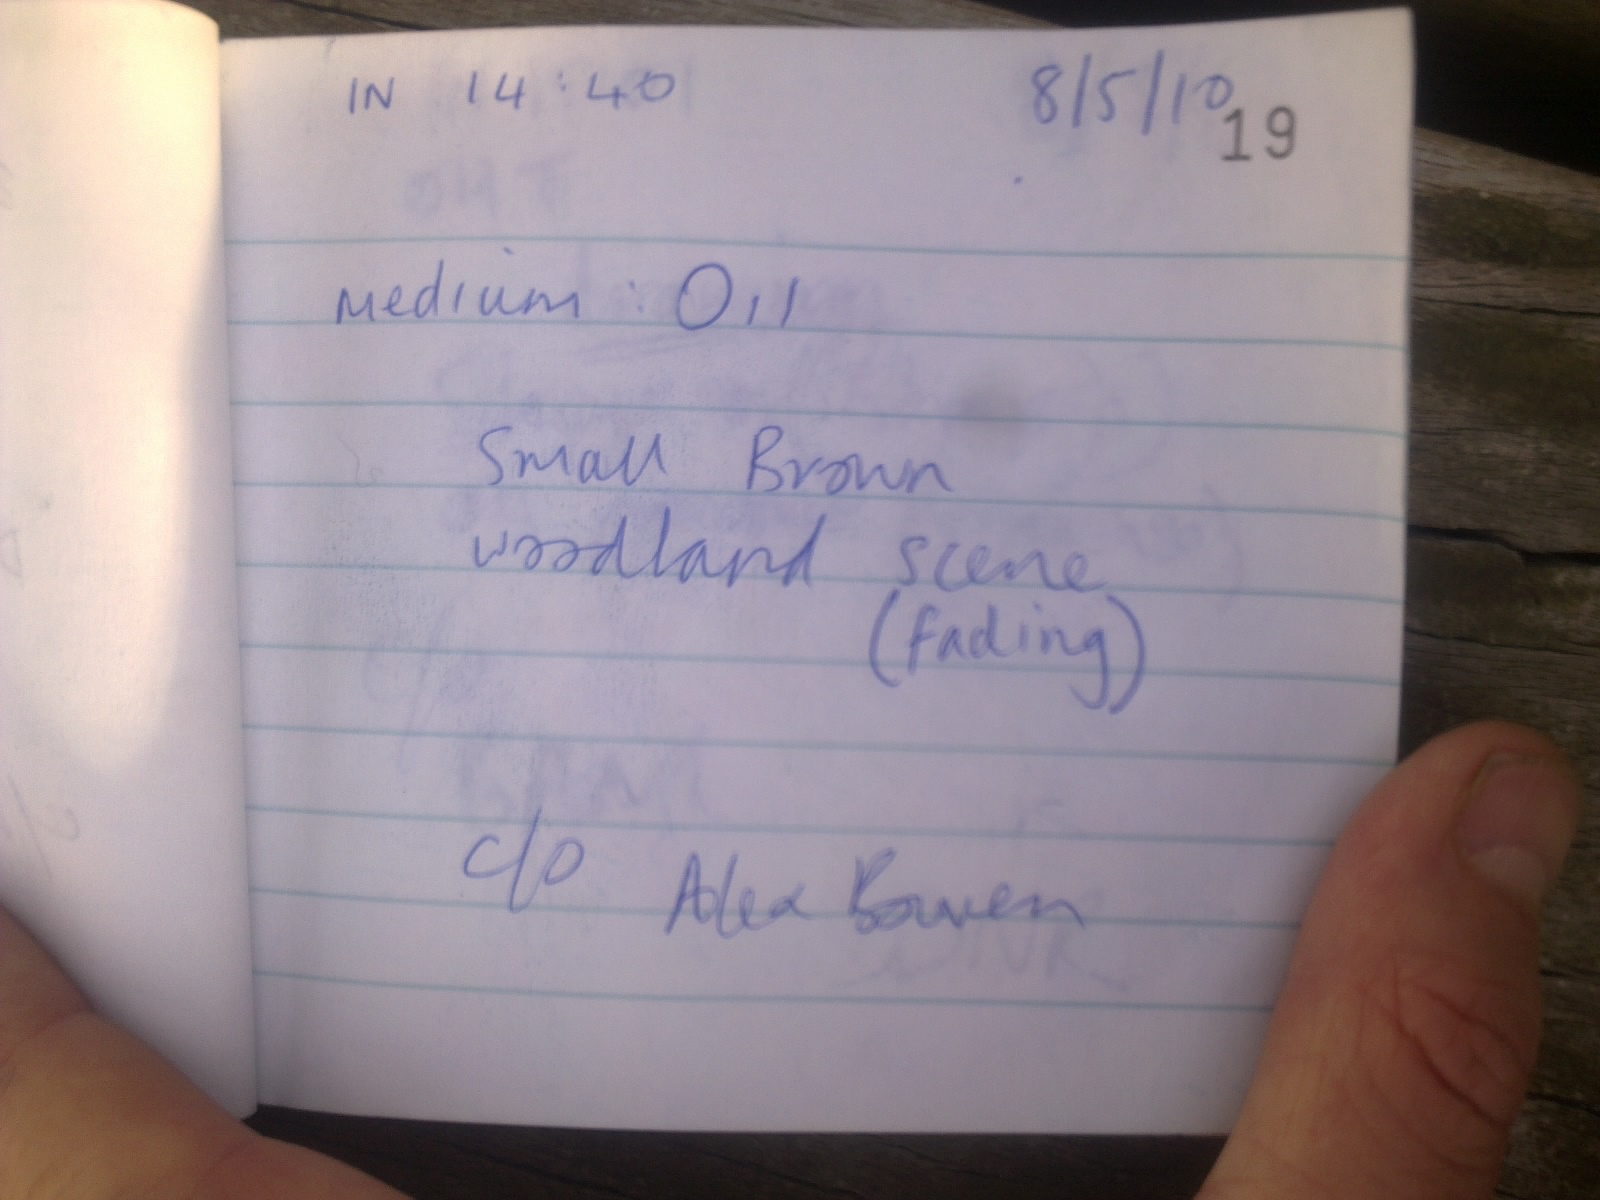 IN 14:40 8/5/10
19
Medium: Oil
Small Brown
woodland scene
(fading)
c/o Alex Bowen